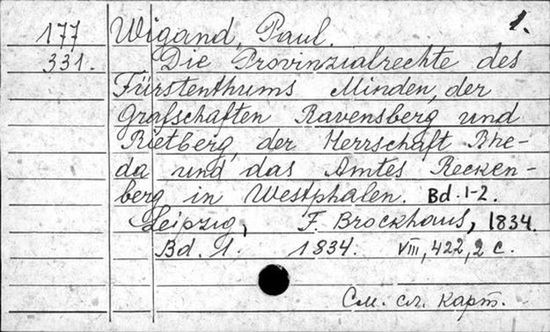 1.
177 Wigand, Paul.
331. Die Provinzialrechte des
Fürstenthums Minden, der
Grafschaften Ravensberg und
Rietberg, der Herrschaft Rhe-
da und das Amtes Recken-
berg in Westphalen. Bd. 1-2.
Leipzig, F. Brockhaus, 1834.
Bd. 1. 1834. VIII, 422, 2 с.
См. сл. карт.